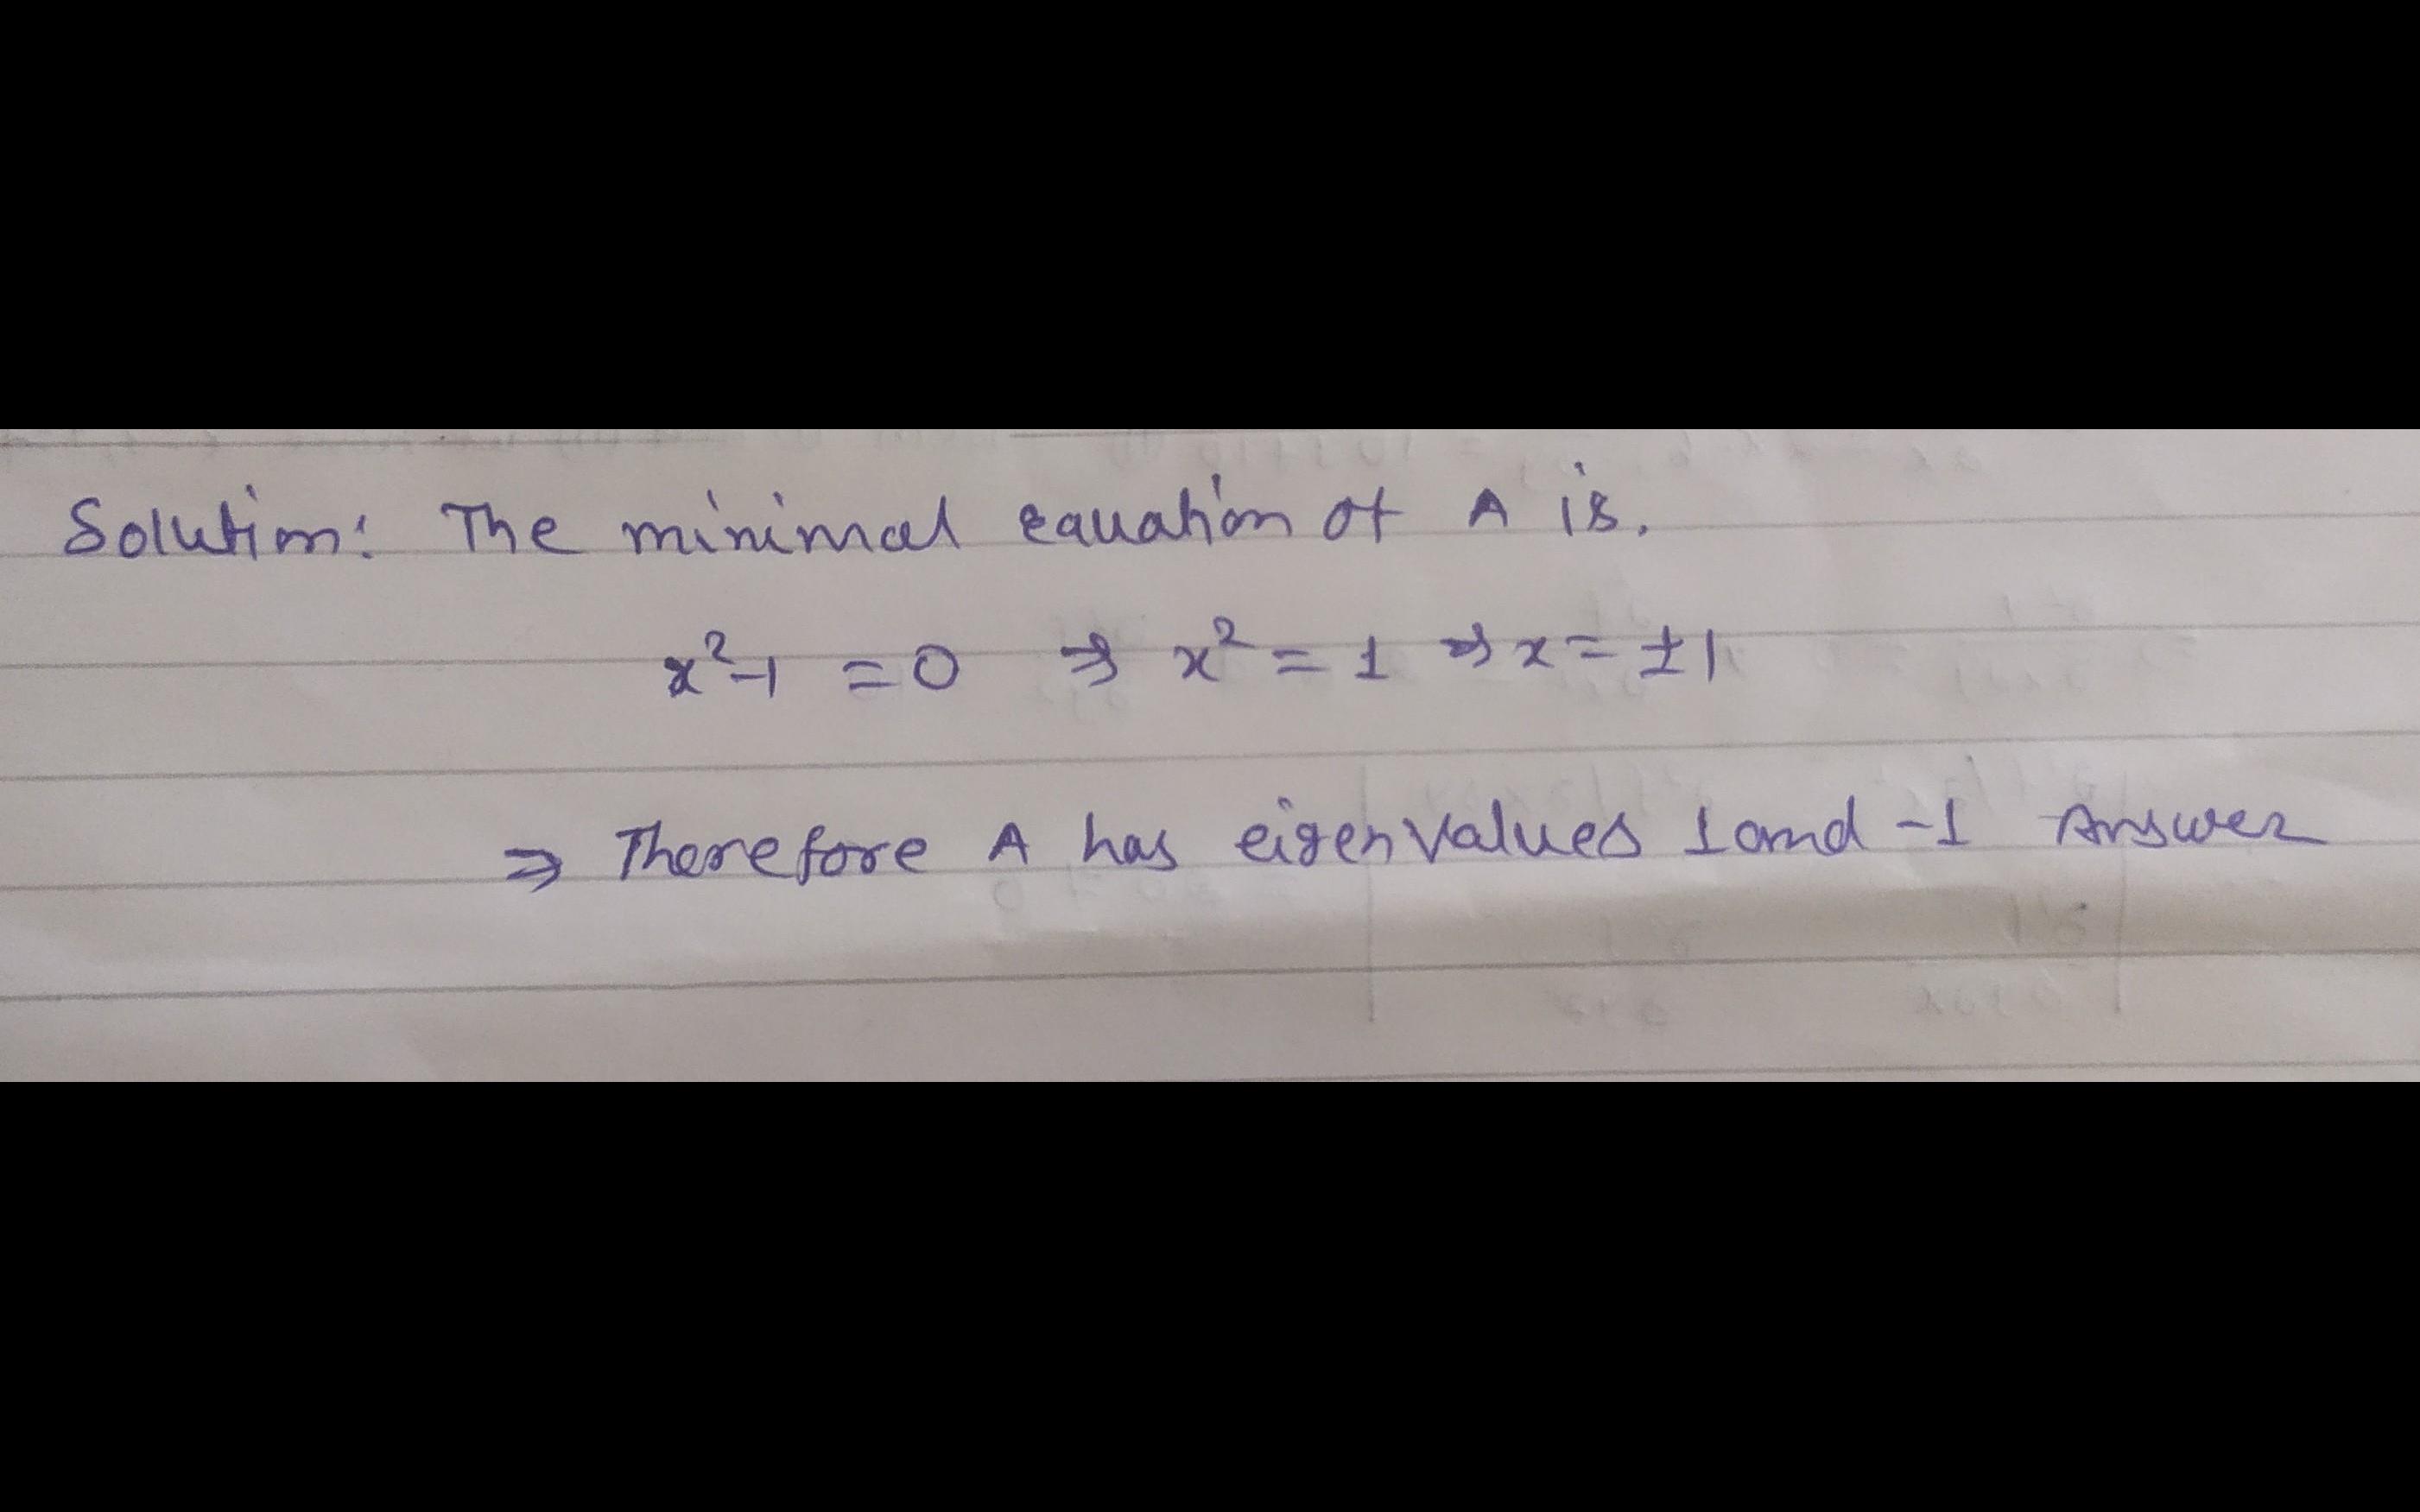 Solution: The minimal equation of A is.
x²-1 = 0 ⇒ x² = 1 ⇒ x = ±1
⇒ Therefore A has eigen values 1 and -1 Answer